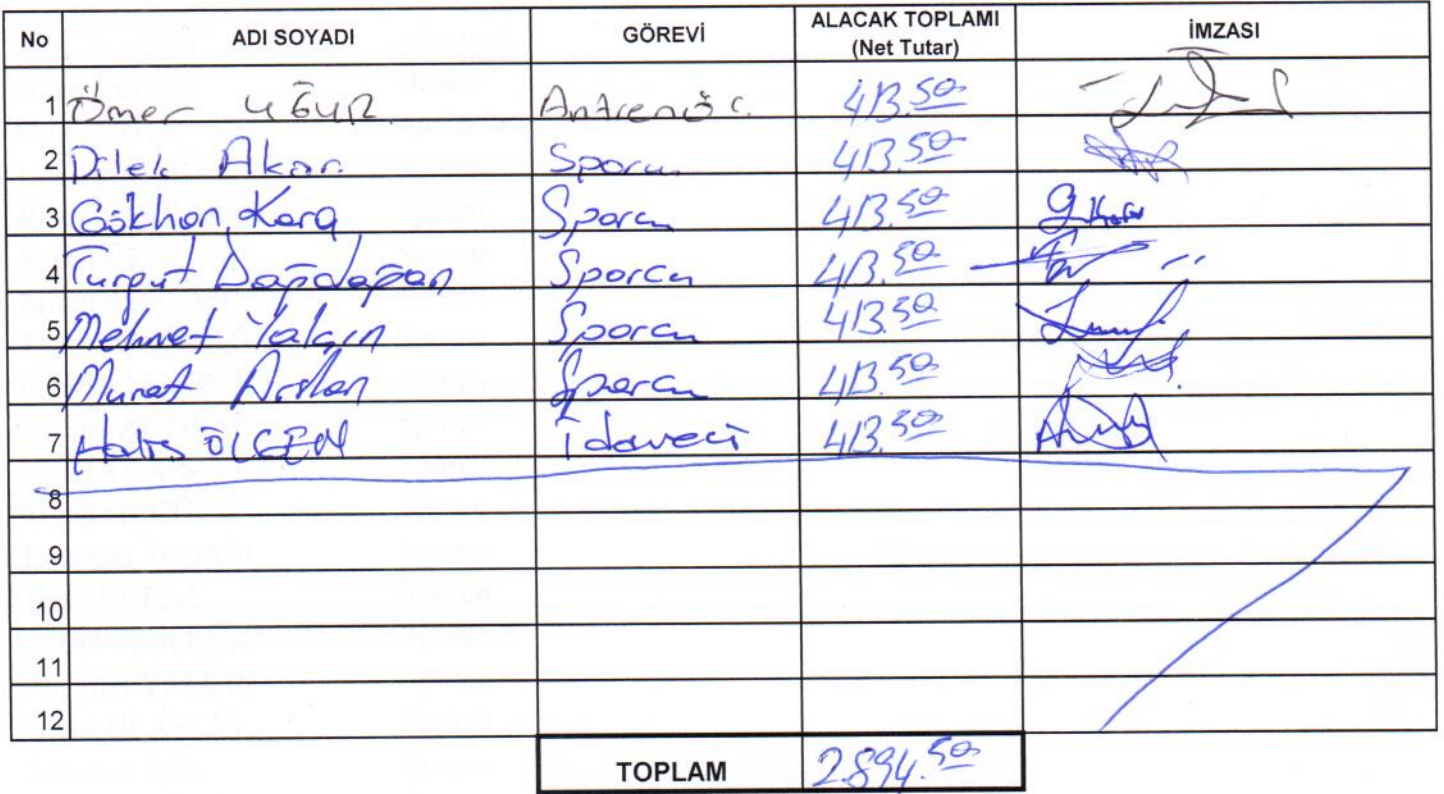 No ADI SOYADI GÖREVİ ALACAK TOPLAMI (Net Tutar) İMZASI
1 Ömer UĞUR Antrenör. 413.50
2 Dilek Akar. Sporcu 413.50
3 Gökhan Kara Sporcu 413.50
4 Turgut Dağdağan Sporcu 413.50
5 Mehmet Yalçın Sporcu 413.50
6 Murat Arslan Sporcu 413.50
7 Halis ÖLGEN İdareci 413.50
8
9
10
11
12
TOPLAM 2.894.50